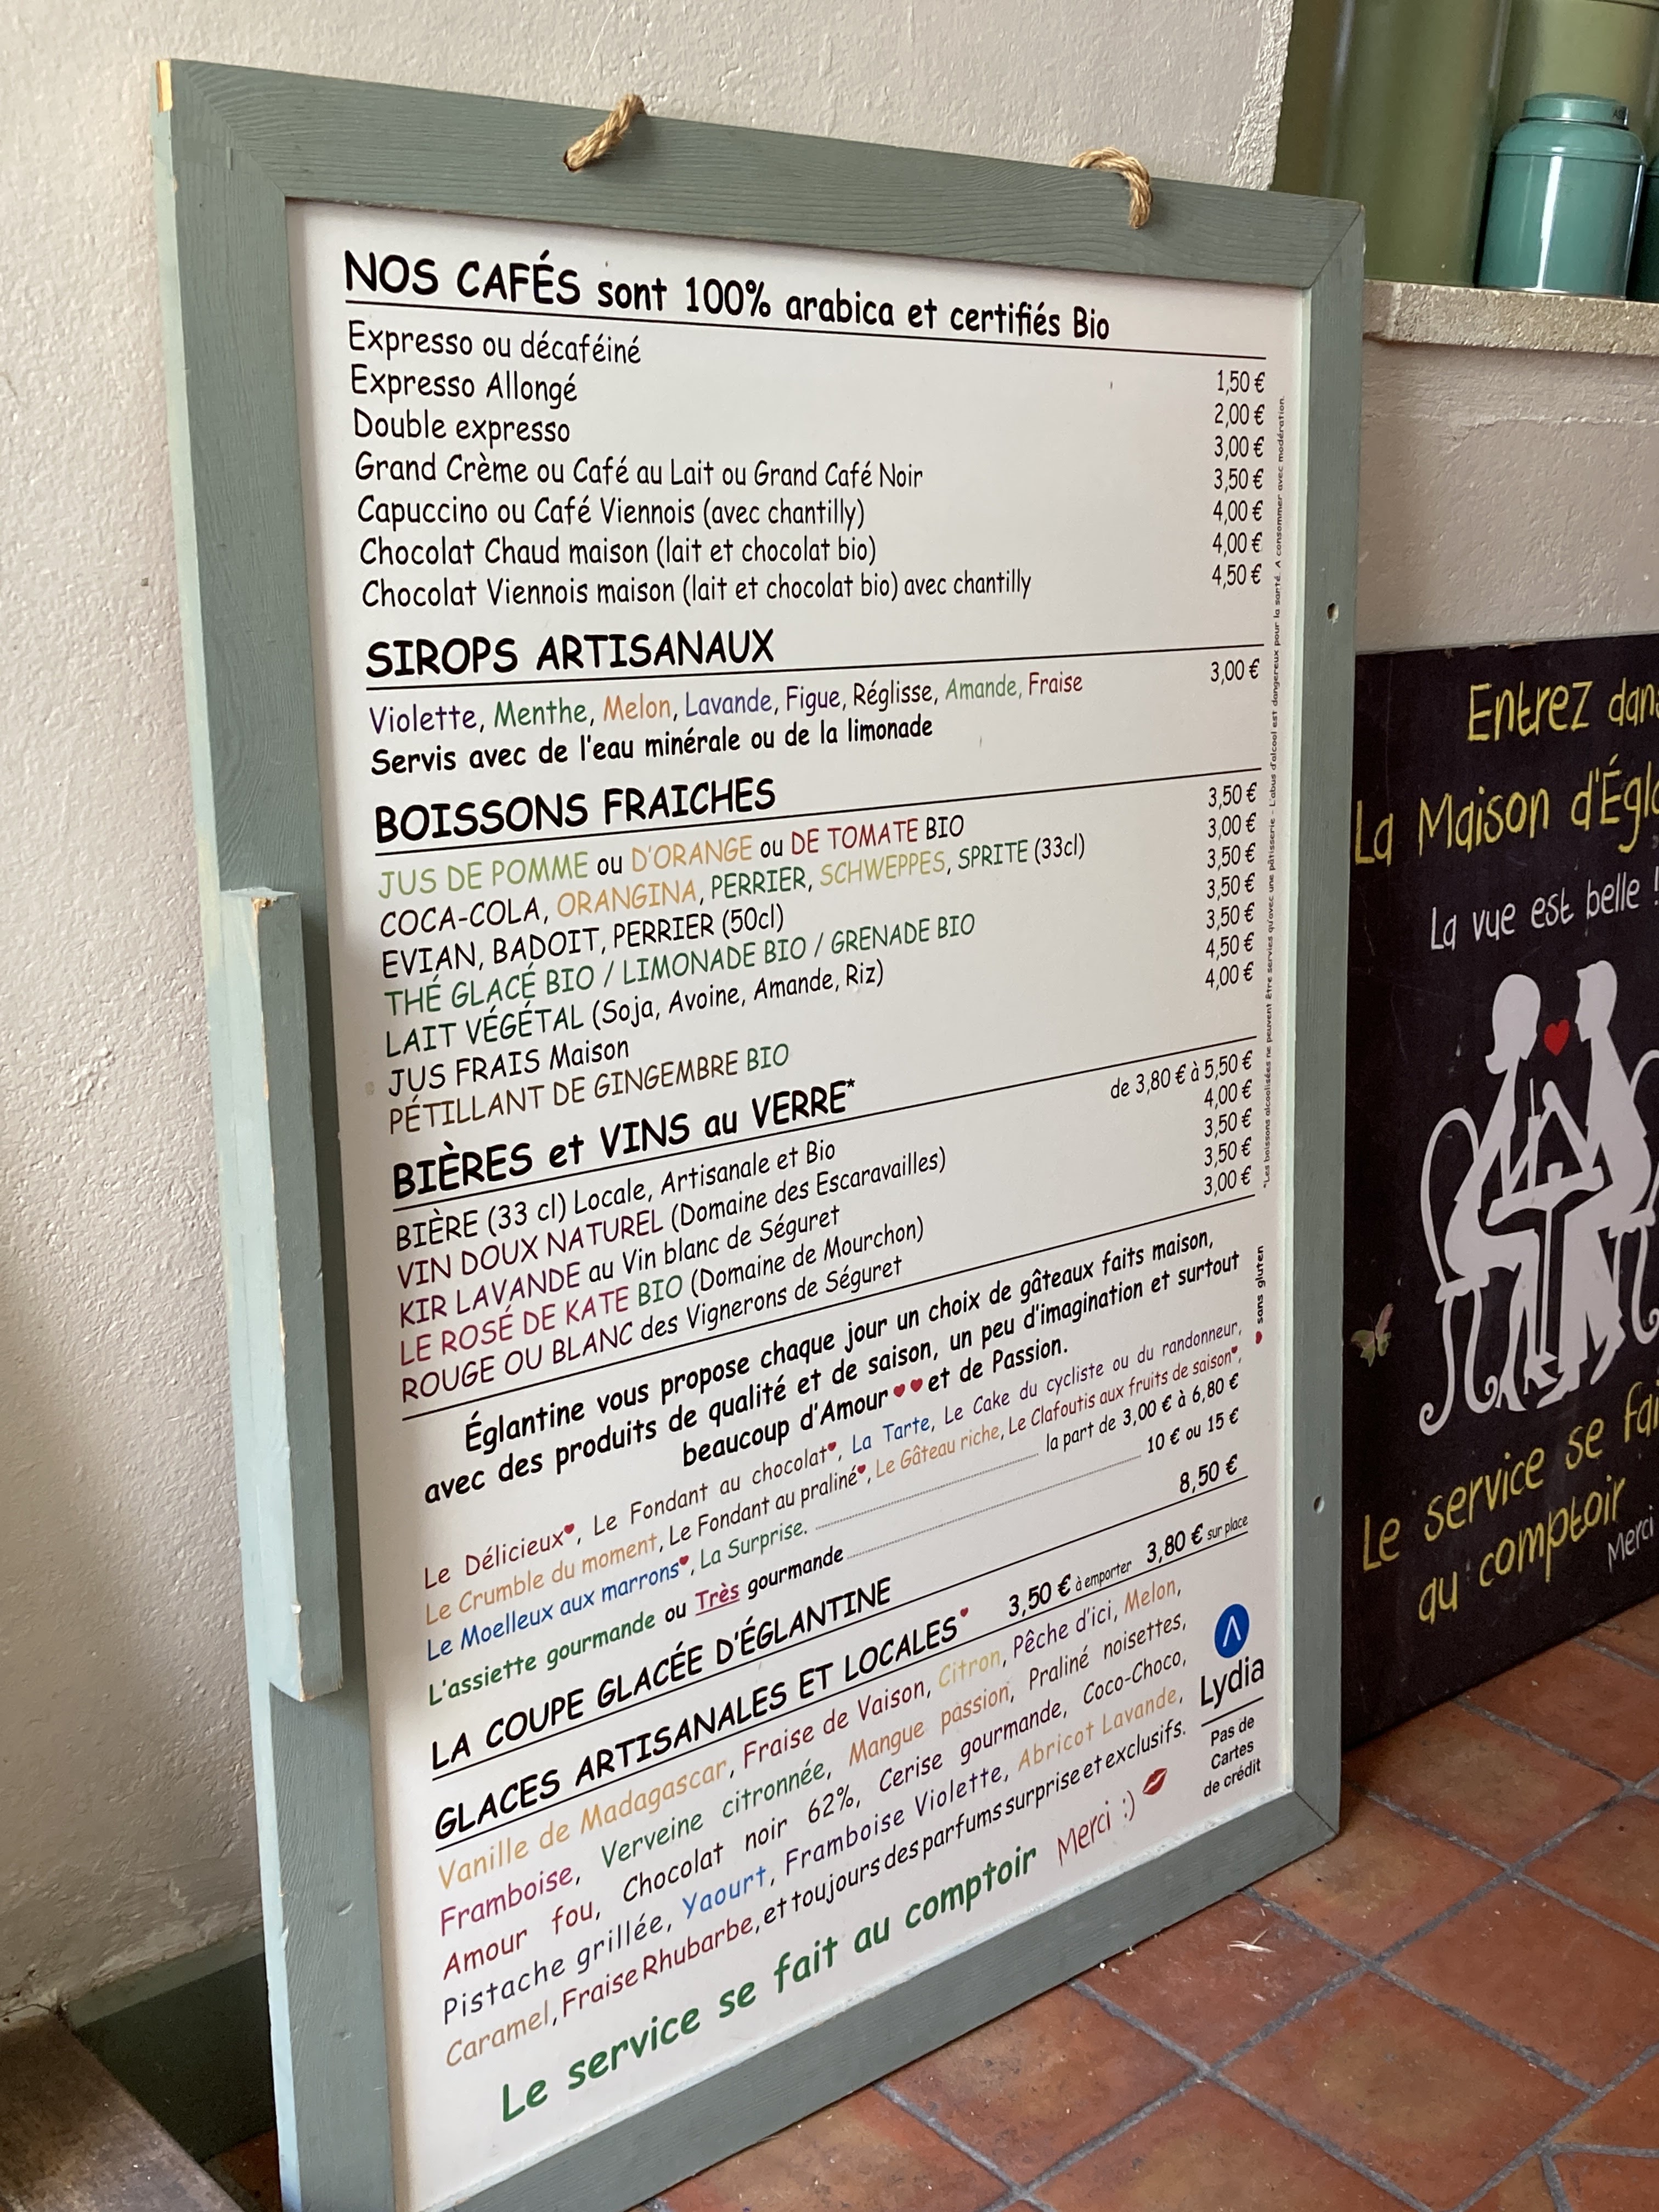 NOS CAFÉS sont 100% arabica et certifiés Bio
Expresso ou décaféiné 1,50 €
Expresso Allongé 2,00 €
Double expresso 3,00 €
Grand Crème ou Café au Lait ou Grand Café Noir 3,50 €
Capuccino ou Café Viennois (avec chantilly) 4,00 €
Chocolat Chaud maison (lait et chocolat bio) 4,00 €
Chocolat Viennois maison (lait et chocolat bio) avec chantilly 4,50 €
SIROPS ARTISANAUX
Violette, Menthe, Melon, Lavande, Figue, Réglisse, Amande, Fraise 3,00 €
Servis avec de l'eau minérale ou de la limonade
BOISSONS FRAICHES
JUS DE POMME ou D'ORANGE ou DE TOMATE BIO 3,50 €
COCA-COLA, ORANGINA, PERRIER, SCHWEPPES, SPRITE (33cl) 3,00 €
EVIAN, BADOIT, PERRIER (50cl) 3,50 €
THÉ GLACÉ BIO / LIMONADE BIO / GRENADE BIO 3,50 €
LAIT VÉGÉTAL (Soja, Avoine, Amande, Riz) 3,50 €
JUS FRAIS Maison 4,50 €
PÉTILLANT DE GINGEMBRE BIO 4,00 €
BIÈRES et VINS au VERRE*
BIÈRE (33 cl) Locale, Artisanale et Bio de 3,80 € à 5,50 €
VIN DOUX NATUREL (Domaine des Escaravailles) 4,00 €
KIR LAVANDE au Vin blanc de Séguret 3,50 €
LE ROSÉ DE KATE BIO (Domaine de Mourchon) 3,50 €
ROUGE OU BLANC des Vignerons de Séguret 3,00 €
Églantine vous propose chaque jour un choix de gâteaux faits maison,
avec des produits de qualité et de saison, un peu d'imagination et surtout
beaucoup d'Amour ♥♥ et de Passion.
Le Délicieux♥, Le Fondant au chocolat♥, La Tarte, Le Cake du cycliste ou du randonneur,
Le Crumble du moment, Le Fondant au praliné♥, Le Gâteau riche, Le Clafoutis aux fruits de saison♥,
Le Moelleux aux marrons♥, La Surprise. la part de 3,00 € à 6,80 €
L'assiette gourmande ou Très gourmande 10 € ou 15 €
LA COUPE GLACÉE D'ÉGLANTINE 8,50 €
GLACES ARTISANALES ET LOCALES♥ 3,50 € à emporter 3,80 € sur place
Vanille de Madagascar, Fraise de Vaison, Citron, Pêche d'ici, Melon,
Framboise, Verveine citronnée, Mangue passion, Praliné noisettes,
Amour fou, Chocolat noir 62%, Cerise gourmande, Coco-Choco,
Pistache grillée, Yaourt, Framboise Violette, Abricot Lavande,
Caramel, Fraise Rhubarbe, et toujours des parfums surprise et exclusifs.
Le service se fait au comptoir Merci :)
*Les boissons alcoolisées ne peuvent être servies qu'avec une pâtisserie - L'abus d'alcool est dangereux pour la santé. A consommer avec modération.
♥ sans gluten
Lydia
Pas de
Cartes
de crédit
Entrez dans
La Maison d'Égl
La vue est belle !
Le service se fai
au comptoir
Merci